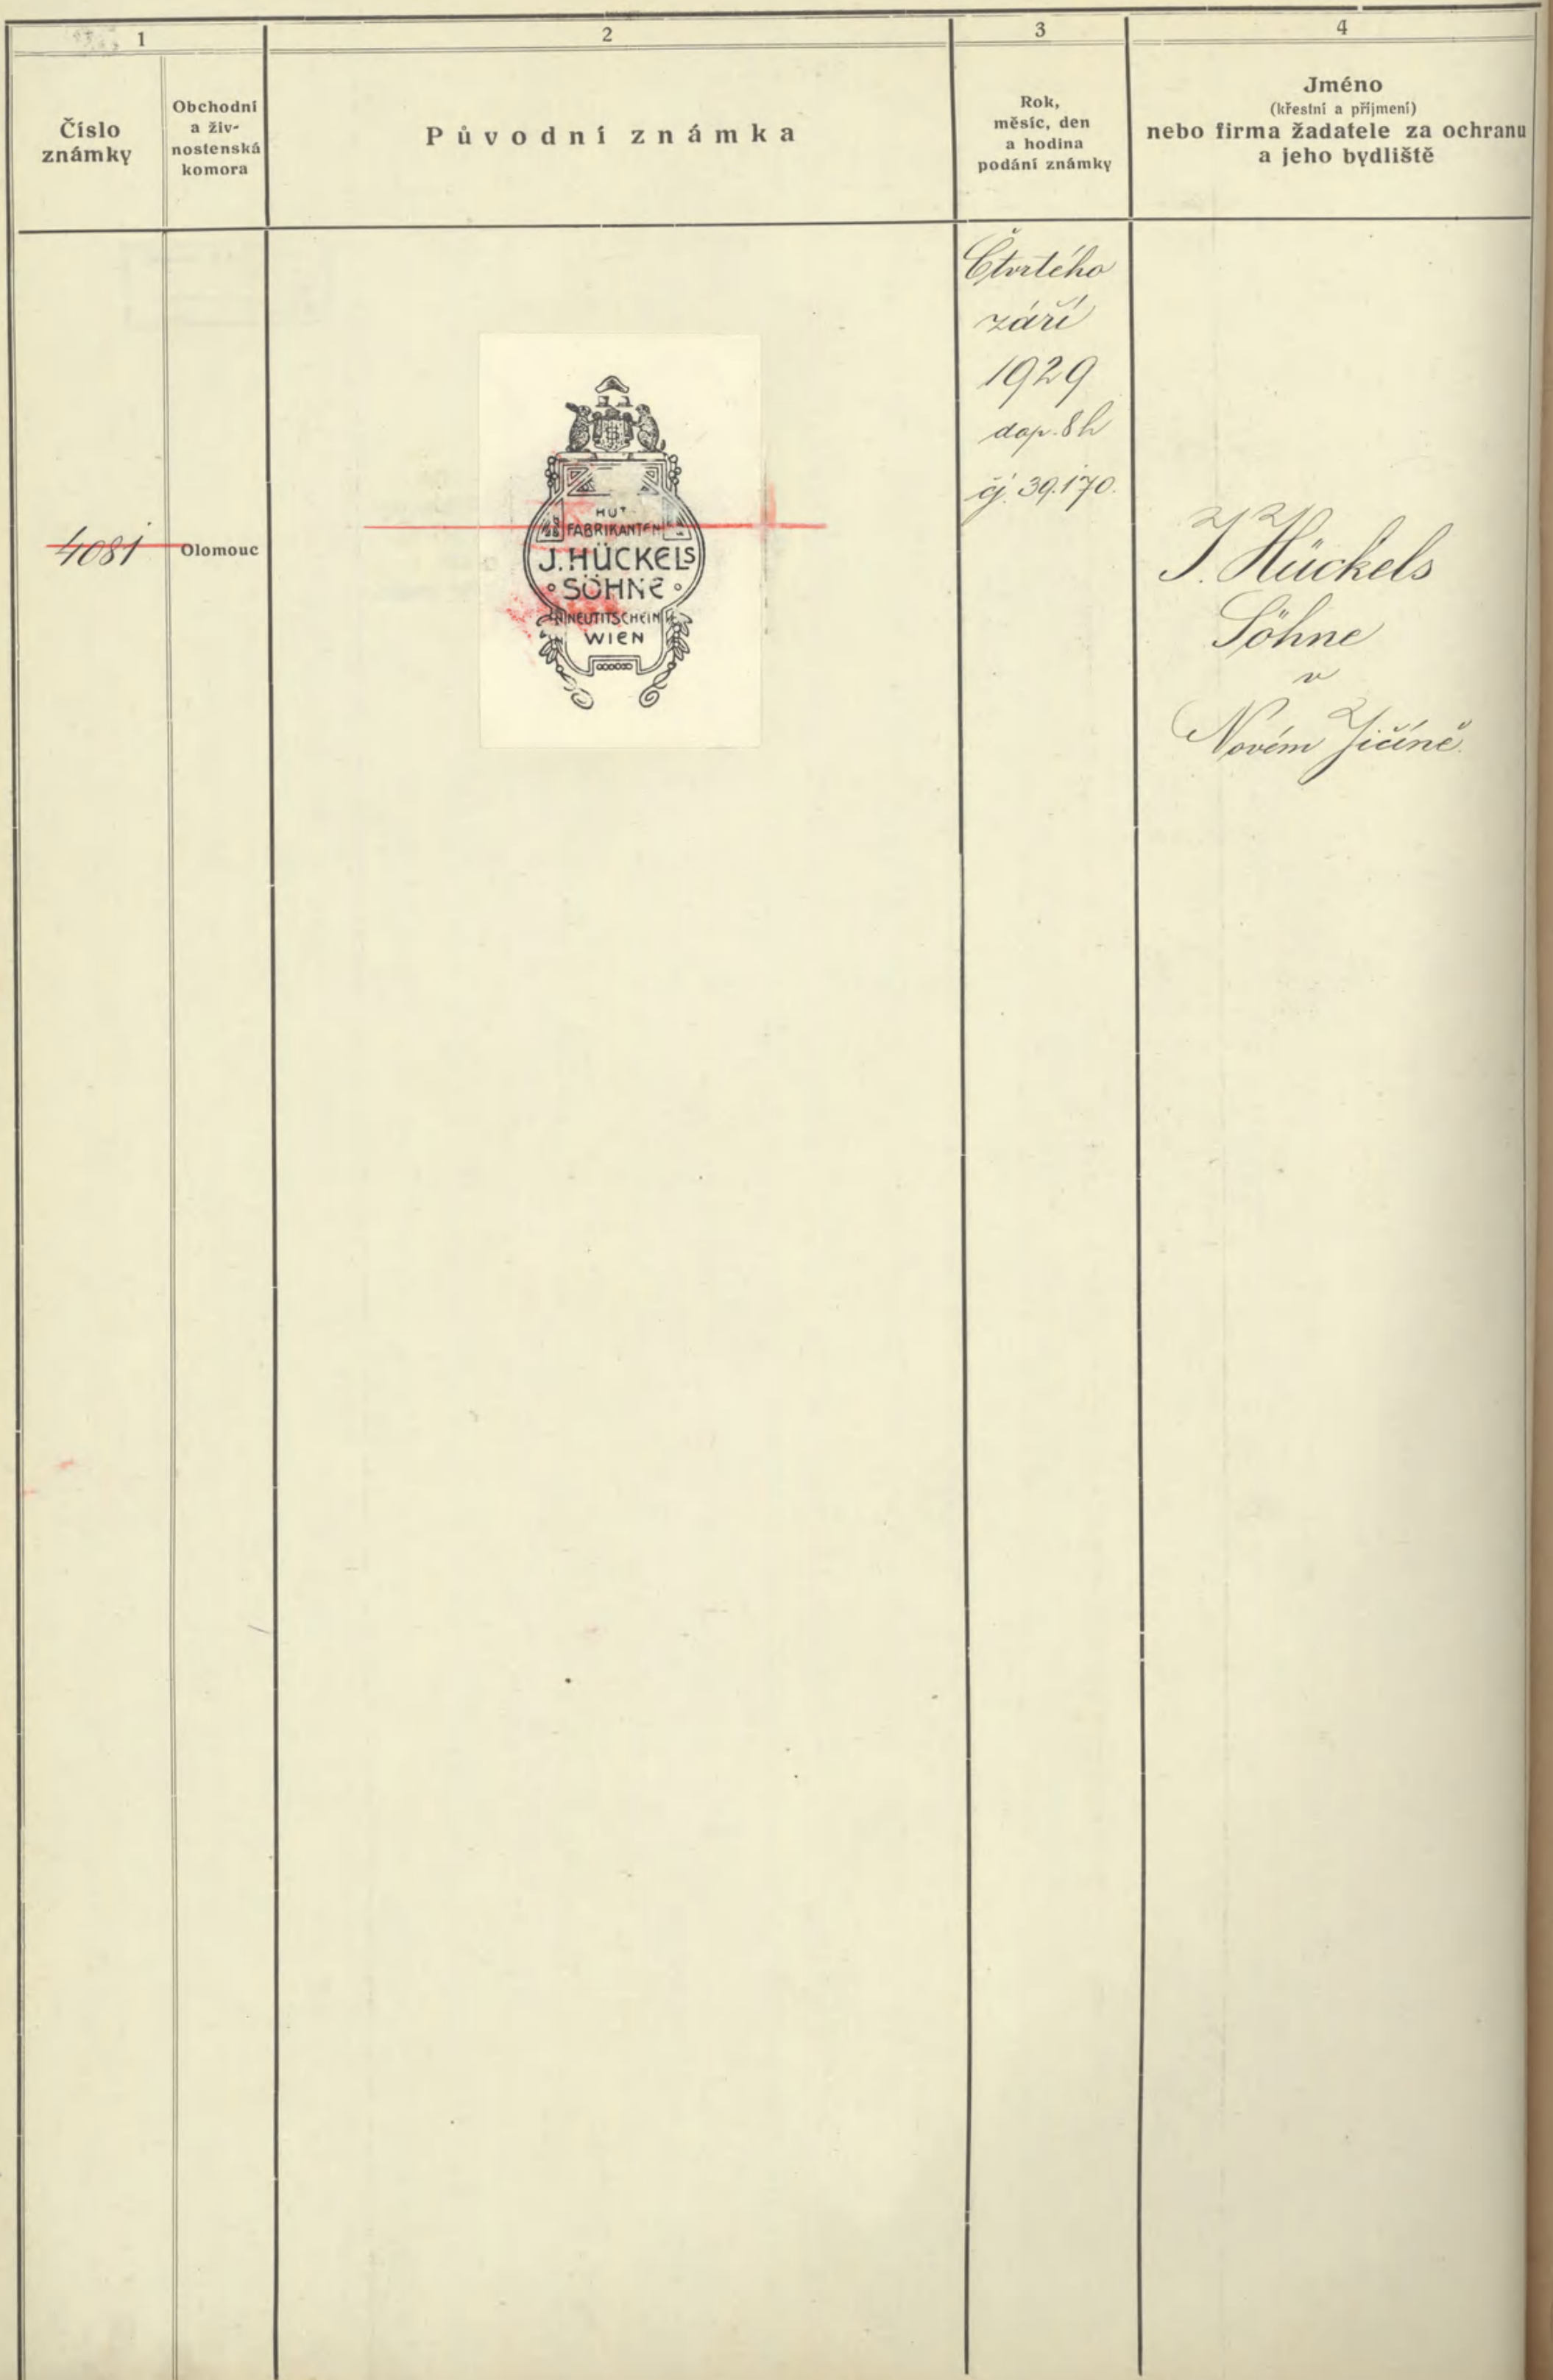 1
2
3
4
Číslo
známky
Obchodní
a živ-
nostenská
komora
Původní známka
Rok,
měsíc, den
a hodina
podání známky
Jméno
(křestní a příjmení)
nebo firma žadatele za ochranu
a jeho bydliště
4081
Olomouc
HUT-
FABRIKANTEN
J. HÜCKELS
SÖHNE
NEUTITSCHEIN
WIEN
Čtvrtého
září
1929
dop. 8 h
čj. 39.170.
J. Hückels
Söhne
v
Novém Jičíně.